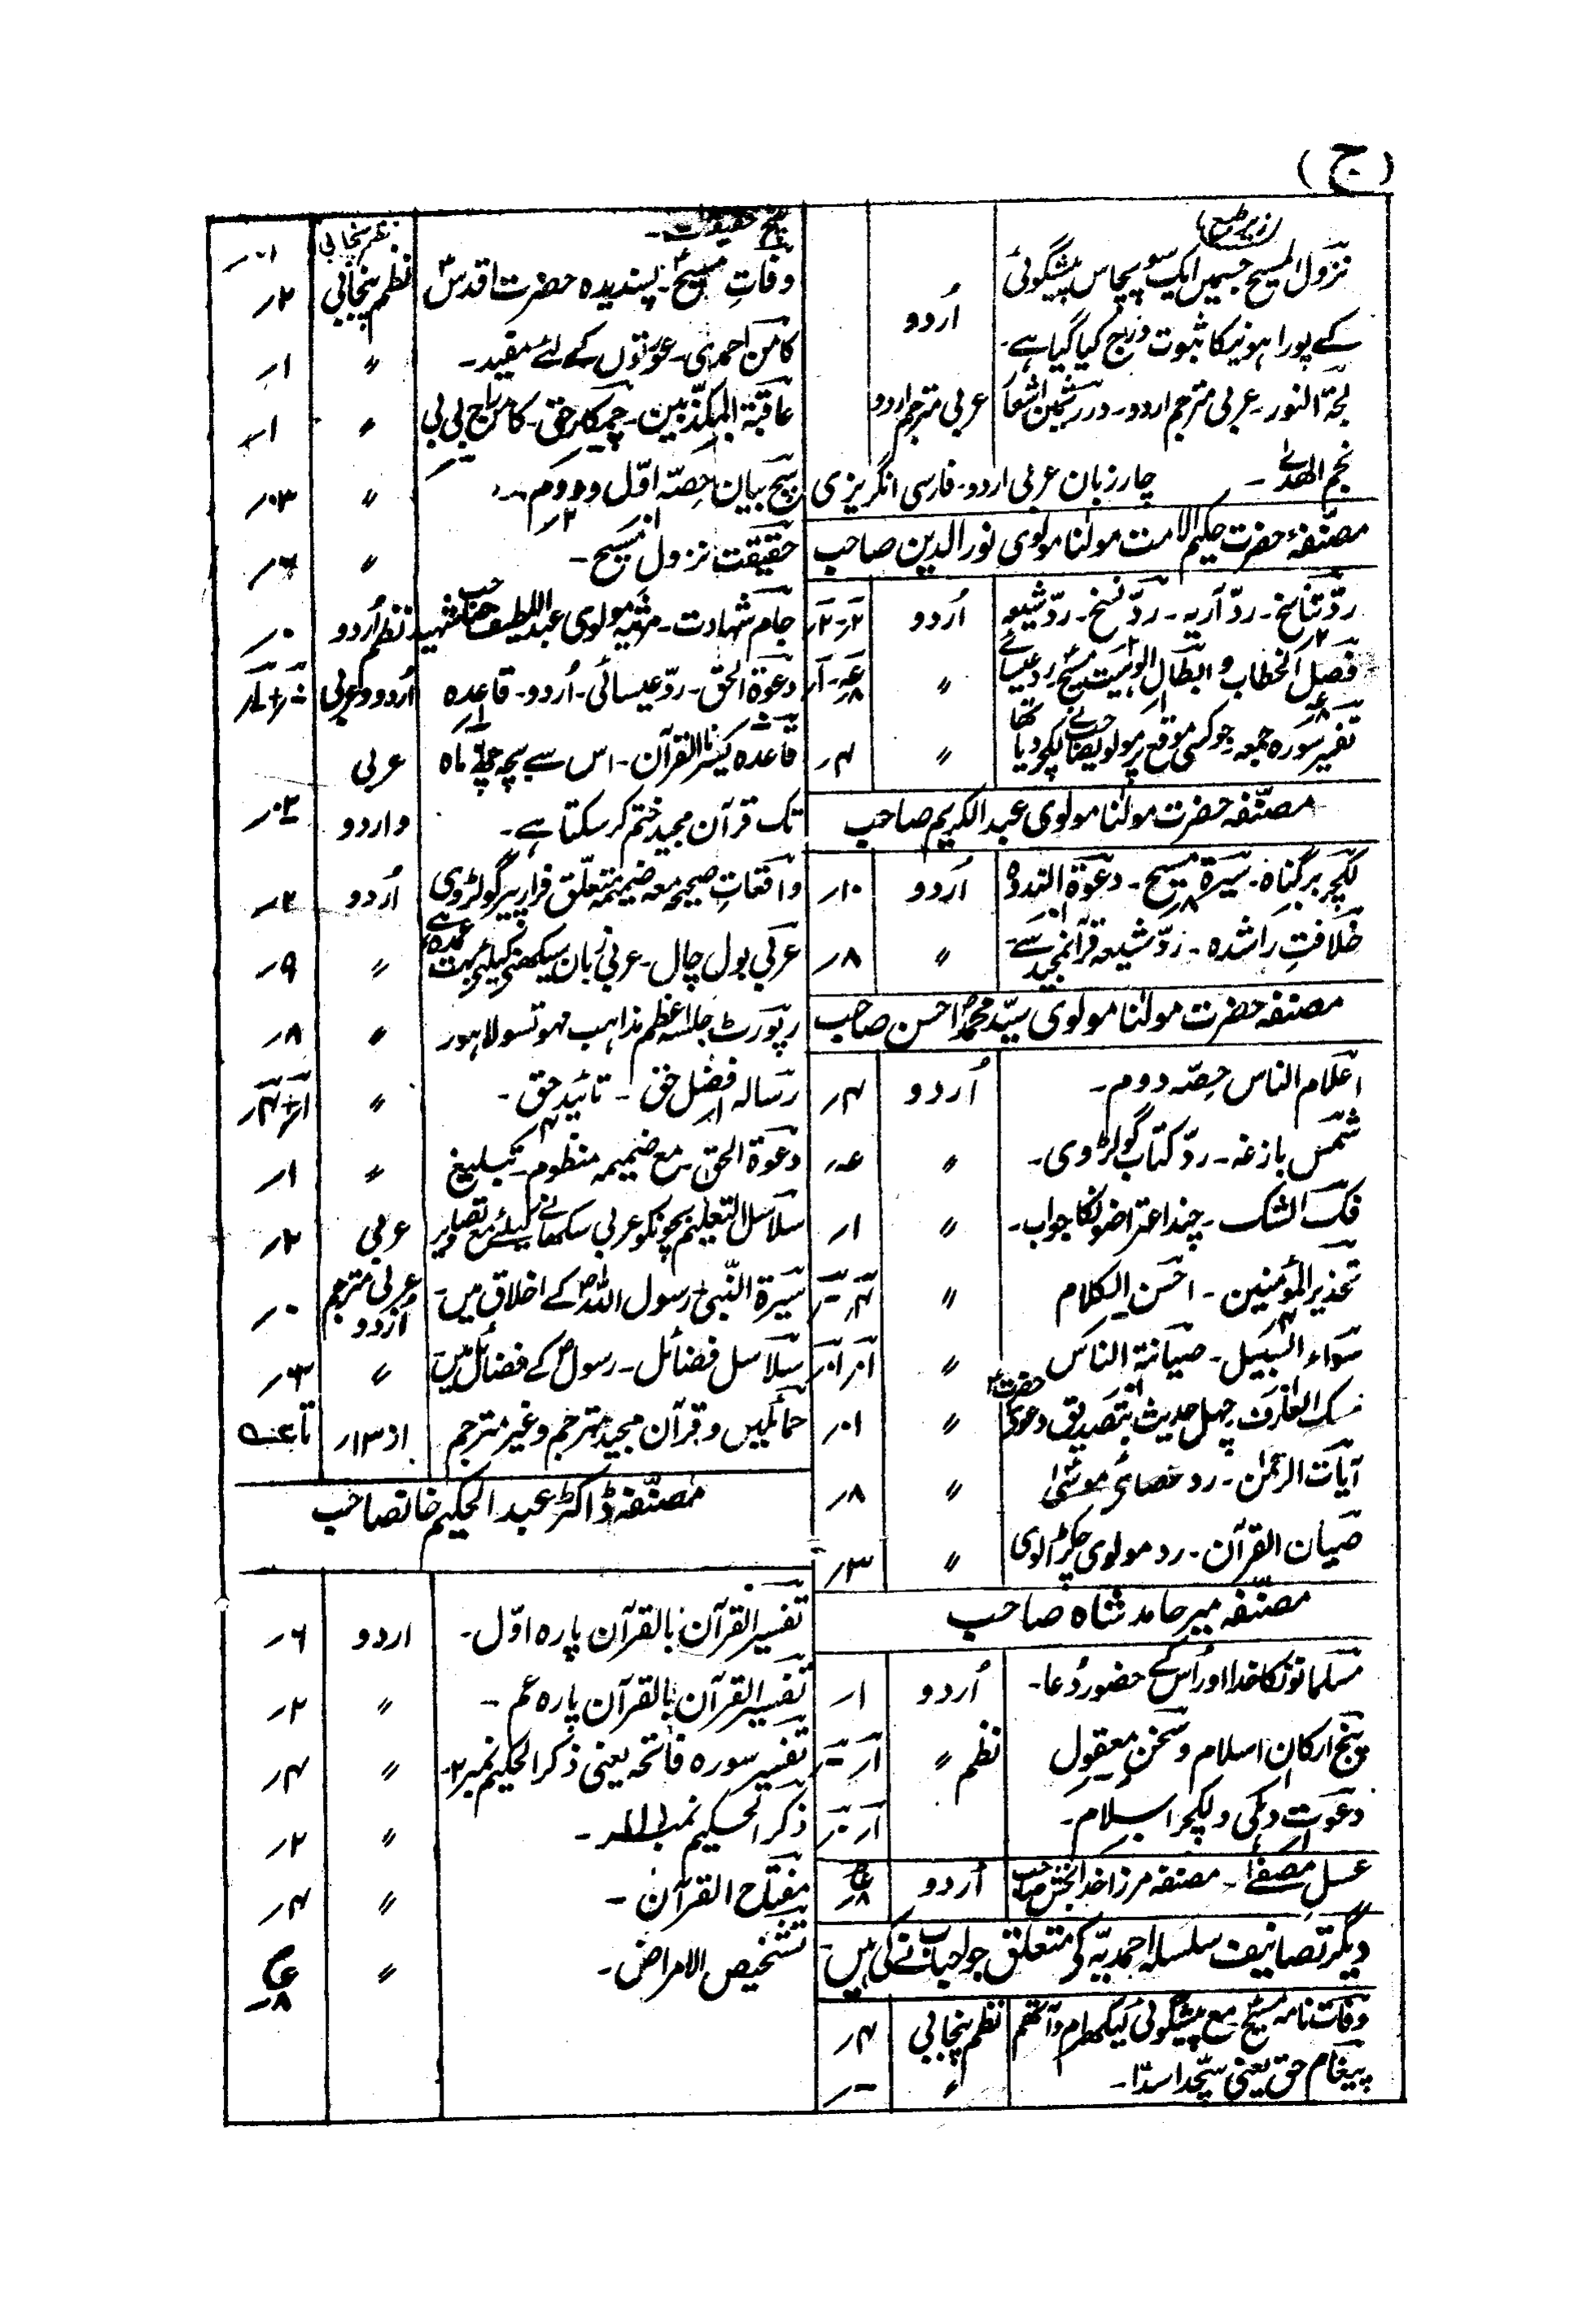 (ج)
(زیر طبع)
نزول المسیح جسمیں ایک سو پچاس پیشگوئی
کے پورا ہونیکا ثبوت درج کیا گیا ہے۔ اُردو
لجۃ النور۔ عربی مترجم اردو۔ درر ثمین اشعار عربی مترجم اردو
نجم الھدےٰ۔ چار زبان عربی اردو۔ فارسی انگریزی
مصنّفہ حضرت حکیم الامت مولٰنا مولوی نور الدین صاحب
ردّ تناسخ۔ ردّ آریہ۔ ردّ نسخ۔ ردّ شیعہ اُردو ۲ر ۲ر
فصل الخطاب و ابطال الوہیت مسیح ردّ عیسائے 〃
تفسیر سورہ جمعہ جو کسی موقع پر مولویصاحب نے لکچر دیا تھا 〃 ۴ر
مصنّفہ حضرت مولٰنا مولوی عبد الکریم صاحب
لکچر بر گناہ۔ سیرۃ مسیح۔ دعوۃ الندوہ اُردو ۱۰ر
خلافتِ راشدہ۔ ردّ شیعہ قرآنمجید سے 〃 ۸ر
مصنفہ حضرت مولٰنا مولوی سیّد محمدؐ احسن صاحب
اعلام الناس حصّہ دوم۔ اُردو ۴ر
شمس بازغہ۔ ردّ کتاب گولڑوی۔ 〃 عہ
فک الشک۔ چند اعتراضونکا جواب۔ 〃 ۱ر
تحذیر المؤمنین۔ احسن الکلام 〃 ۴ر
سواء السبیل۔ صیانۃ الناس 〃 ۱ر ۱۰ر
مسک العارف چہل حدیث بتصدیق دعویٰ حضرتؑ 〃 ۱۰ر
آیات الرحمٰن۔ رد عصائے موسیٰ 〃 ۸ر
صیان القرآن۔ رد مولوی چکڑالوی 〃 ۳ر
مصنّفہ میر حامد شاہ صاحب
مسلمانونکا خدا اور اُس کے حضور دُعا۔ اُردو ۱ر
پنج ارکانِ اسلام و سخن معقول نظم 〃 ۱ر
دعوت دہلی و لیکچر اسلام۔ ۱ر
عسل مصفےٰ۔ مصنفہ مرزا خدابخش صاحب اُردو
دیگر تصانیف سلسلہ احمدیّہ کی متعلق جو احباب نے کی ہیں۔
وفات نامہ مسیح مع پیشگوئی لیکھرام و آتھم نظم پنجابی ۴ر
پیغام حق یعنی سچّہ اسدّا۔ 〃
پنج حقیقت۔ نظم پنجابی
وفاتِ مسیحؑ۔ پسندیدہ حضرت اقدسؑ نظم پنجابی ۲ر
کامن احمدی۔ عورتوں کے لئے مفید۔ 〃 ۱ر
عاقبۃ المکذّبین۔ چمکار حق۔ کامن تاج بی بی 〃 ۱ر
سچ بیان حصّہ اوّل و دوم۔ 〃 ۳ر
حقیقت نزول مسیح۔ 〃 ۶ر
جام شہادت۔ مرثیہ مولوی عبداللطیف صاحب شہید نظم اُردو
دعوۃ الحق۔ ردّ عیسائی۔ اُردو۔ قاعدہ اُردو و عربی
قاعدہ یسرنا القرآن۔ اس سے بچہ چھ ماہ عربی
تک قرآن مجید ختم کر سکتا ہے۔ و اردو
واقعاتِ صحیحہ معہ ضمیمہ متعلّق فرار پیر گولڑوی اُردو ۲ر
عربی بول چال۔ عربی زبان سیکھنے کیلئے بہت عمدہ ہے 〃 ۹ر
رپورٹ جلسہ اعظم مذاہب مہوتسو لاہور 〃 ۸ر
رسالہ فضل حق۔ تائید حق۔ 〃 ۱ر + ۴ر
دعوۃ الحق۔ مع ضمیمہ منظوم۔ تبلیغ 〃 ۱ر
سلاسل التعلیم بچونکو عربی سکھانے کیلئے مع تصاویر عربی ۲ر
سیرۃ النبی۔ رسول اللہؐ کے اخلاق میں۔ عربی مترجم اُردو
سلاسل فضائل۔ رسولؐ کے فضائل میں 〃 ۳ر
حمائلیں و قرآن مجید مترجم و غیر مترجم از ۱۳ر
مصنّفہ ڈاکٹر عبد الحکیم خانصاحب
تفسیر القرآن بالقرآن پارہ اوّل۔ اردو ۶ر
تفسیر القرآن بالقرآن پارہ عم۔ 〃 ۲ر
تفسیر سورہ فاتحہ یعنی ذکر الحکیم نمبر ۲۔ 〃 ۴ر
ذکر الحکیم نمبر ۔ 〃 ۲ر
مفتاح القرآن۔ 〃 ۴ر
تشخیص الامراض۔ 〃